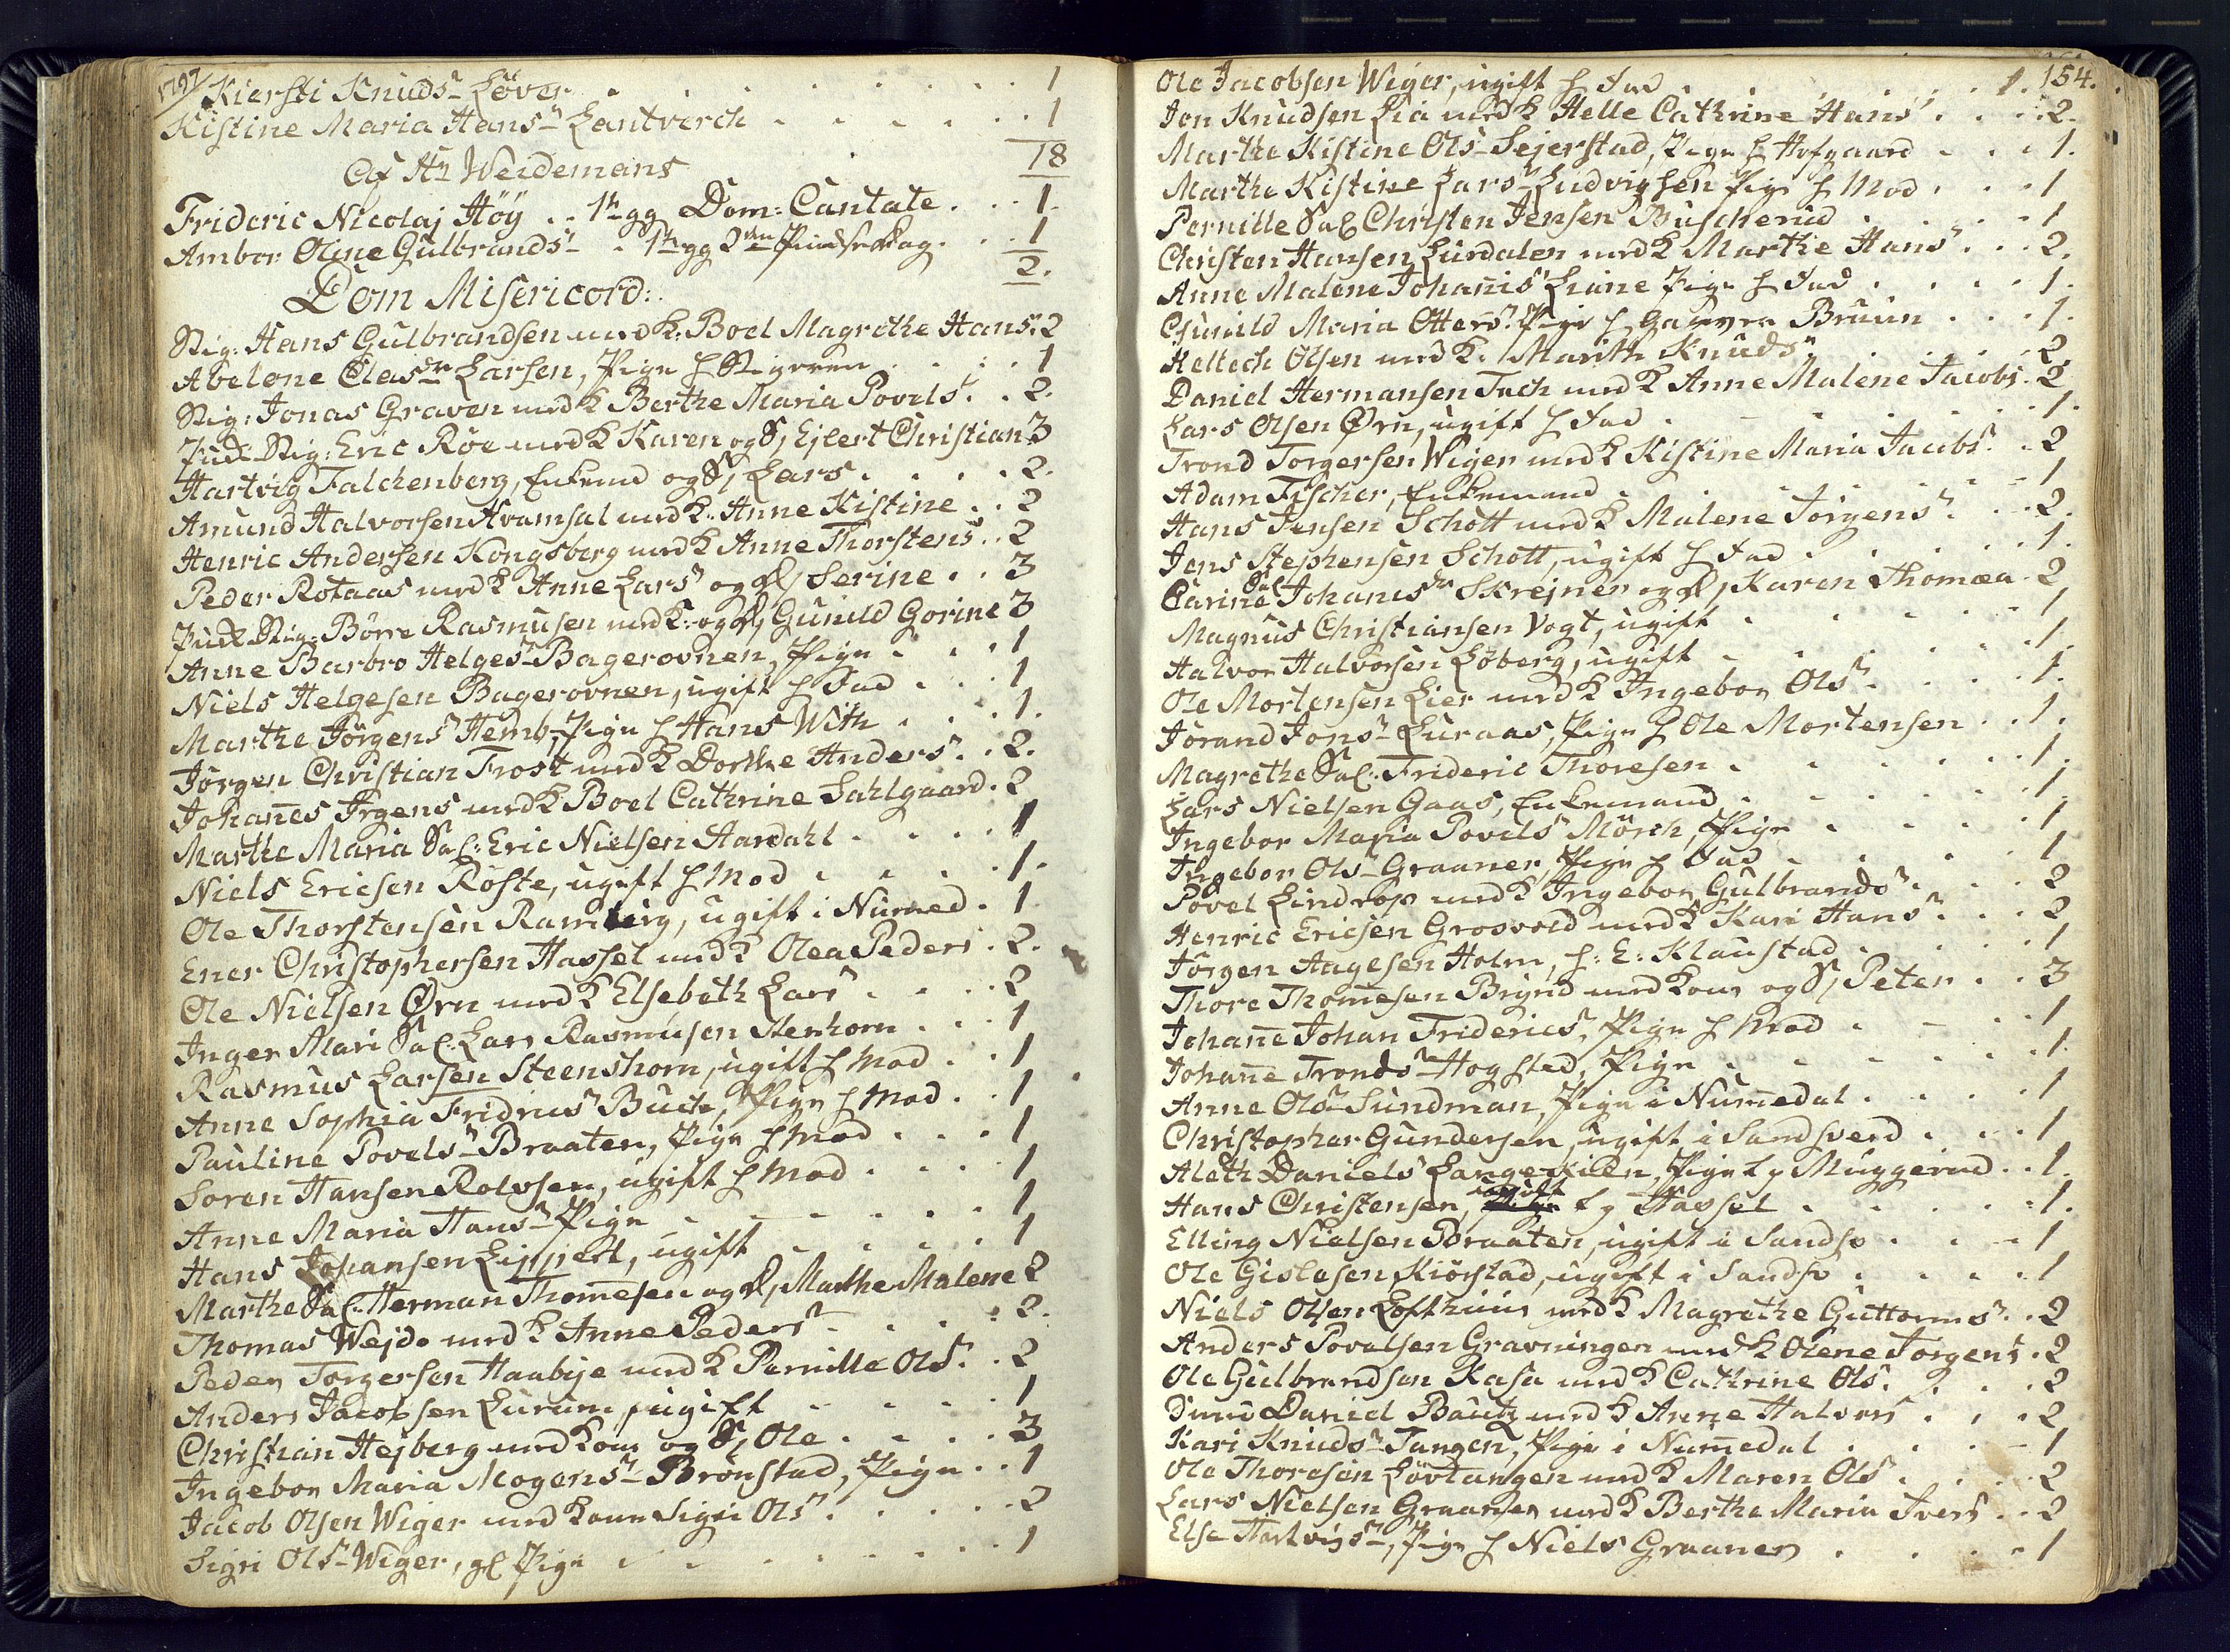 1797
Kiersti Knudsn Løver . . . . 1
Kistine Maria Hansn Lantverch . . . . 1
18
Af Hr Weidemans
Frideric Nicolaj Höÿ . . 1n gg Dom: Cantate . . . 1.
Ambor Oline Gulbrandsn . 1n gg 2den Pindsedag . . . 1
2.
Dom Misericord:
Stig: Hans Gulbrandsen med K: Boel Magrethe Hansn. 2
Abelone Clasdr Larsen, Pige h Stigeren . . . . 1
Stig: Jonas Graven med K Berthe Maria Povelsn . . 2.
Stig: Eric Röe med K Karen og S, Ejlert Christian 3
Hartvig Falchenberg, Enkemd og S, Lars . . . . 2.
Amund Halvorsen Kvamsal med K: Anne Kistine . . 2
Henric Andersen Kongsberg med K Anne Thorstensn . . 2
Peder Rotaas med K Anne Larsn og D, Serine . . 3
Stig: Börre Rasmusen med K: og D, Gunild Gorine 3
Anne Barbro Helgesn Bagerovnen, Pige . . . 1
Niels Helgesen Bagerovnen, ugift h Fad . . . 1
Marthe Jörgensn Hemb, Pige h Hans With . . . 1.
Jörgen Christian Frost med K Dorthe Andersn . . 2.
Johan̄es Irgens med K Boel Cathrine Sahlgaard . 2
Marthe Maria Sal: Eric Nielsen Aardahl . . . . 1
Niels Ericsen Röste, ugift h Mod . . . . 1.
Ole Thorstensen Ramberg, ugift i Numed . 1
Ener Christophersen Hassel med K Olea Peders . 2.
Ole Nielsen Ørn med K Elsebeth Larsn . . . 2
Inger Mari Sal: Lars Rasmusen Stenhorn . . . 1
Rasmus Larsen Steenshorn, ugift h Mod . . 1
Anne Sophia Fridricsn Buch, Pige h Mod . . 1
Pauline Povelsn Braaten, Pige h Mod . . . 1
Soren Hansen Rolvsen, ugift h Mod . . . . 1
Anne Maria Hansn Pige . . . . . 1
Hans Johansen Lippert, ugift . . . . 1
Marthe Sal: Herman Thom̄esen og D, Marthe Malene 2
Thomas Wejde med K Anne Pedersn . . . . 2.
Peder Torgersen Haabye med K Pernille Olsn . . 2
Anders Jacobsen Lurum, ugift . . . . 1
Christian Hejberg med Kone og S, Ole . . . . 3
Ingebor Maria Mogensn Brönstad, Pige . . 1
Jacob Olsen Wiger med Kone Sigri Olsn . . . . 2
Sigri Olsn Wiger, gl Pige . . . . . 1
154.
Ole Jacobsen Wiger, ugift h Fad . . . . 1.
Jon Knudsen Lia med K Helle Cathrine Hansn . . . 2.
Marthe Kistine Olsn Sejerstad, Pige h Hofgaard . . . 1.
Marthe Kistine Larsn Ludvigsen Pige h Mod . . . 1
Pernille Sal Christen Jensen Buscherud . . . . 1
Christen Hansen Lurdalen med K Marthe Hansn . . . 2.
Anne Malene Johan̄isn Liane Pige h Fad . . . . 1.
Gunild Maria Ottersn Pige h Bruun . . . 1.
Keltech Olsen med K: Marith Knudsn . . 2.
Daniel Hermansen Tuch med K Anne Malene Jacobs . 2
Lars Olsen Ørn, ugift h Fad . . . . 1.
Trond Torgersen Wiger med K Kistine Maria Jacobsn . . 2
Adam Fischer, Enkemand . . . . 1
Hans Jensen Schott med K Malene Jörgensn . . . 2.
Jens Stephensen Schott, ugift h Fad . . . . 1.
Carine Sal Johanesdr Skrejner og D, Karen Thomæa . 2
Magnus Christiansen Vogt, ugift . . . . 1
Halvor Halvorsen Löberg, ugift . . . . 1.
Ole Mortensen Lier med K Ingebor Olsn . . . . 1.
Jörand Jonsn Luraas, Pige h Ole Mortensen . . 1.
Magrethe Sal: Frideric Thoresen . . . . 1.
Lars Nielsen Gaas, Enkemand . . . . 1
Ingebor Maria Povelsn Mörch, Pige . . . . 1
Ingebor Olsn Graaner, Pige h Fad . . . . 1
Povel Lindrop med K Ingebor Gulbrandsn . . . 2
Henric Ericsen Grosvold med K Kari Hansn . . . 2
Jörgen Aagesen Holm, h: E: Klaustad . . . . 1
Thore Thom̄esen Brynd med Kone og S, Peter . . 3
Johan̄e Johan Fridericsn, Pige h Mod . . . . 1
Johan̄e Trondsn Hogsted, Pige . . . . 1.
Anne Olsn Sundman, Pige i Num̄edal . . . . 1
Christopher Gundersen, ugift i Sandsverd . . . 1
Aleth Danielsn Langekilen, Pige h p Muggerud . . 1.
Hans Christensen, ugift h p Hassel . . . . 1.
Elling Nielsen Braaten, ugift i Sandsv . . . 1
Ole Gislesen Kiörstad, ugift i Sandsv . . . . 1
Niels Olsen Lofthuus med K Magrethe Guttormsn . . 2
Anders Povelsen Gravningen med K Olene Torgens . 2
Ole Gulbrandsen Rasa med K Cathrine Olsn . . . . 2
Daniel Bautz med K Anne Halvors . . . 2
Kari Knudsn Tangen, Pige i Num̄edal . . . . 1
Ole Thoresen Lövtangen med K Maren Olsn . . . . 2
Lars Nielsen Graanser med K Berthe Maria Ivers . . 2
Else Hartvigsn, Pige h Niels Graaner . . . . 1